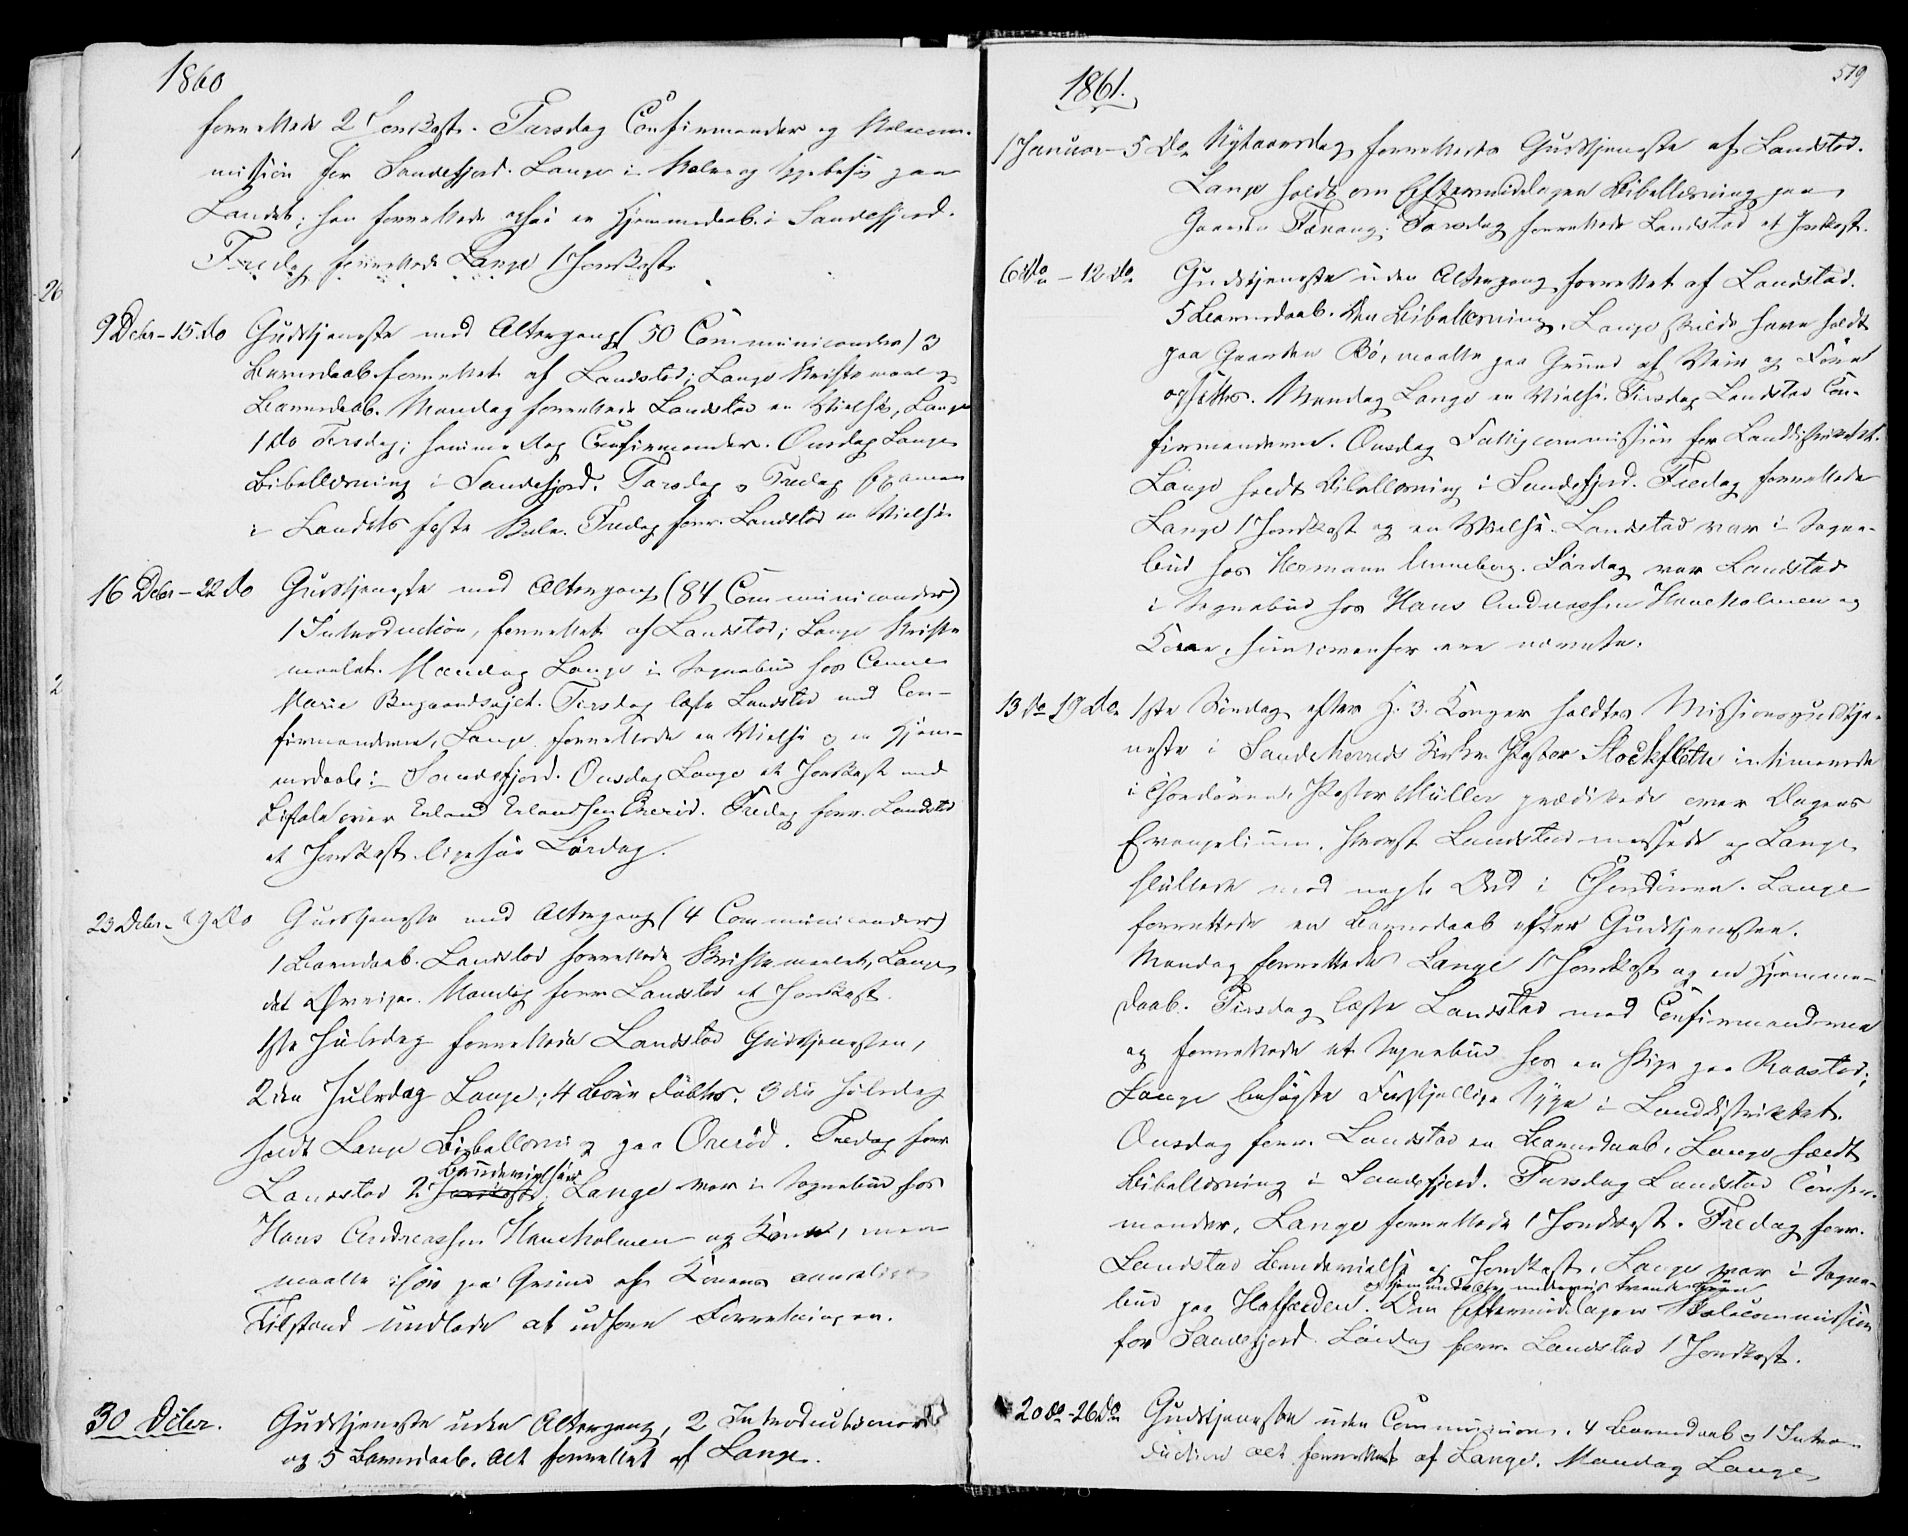 1860
forrettede 2 Jordkast. Torsdag Confirmander og Skolecom-
mission for Sandefjord. Lange i Skole og Sygebesøg paa
Landet; han forrettede også en Hjemmedaab i Sandefjord.
Fredag forrettede Lange 1 Jordkast.
26
9 Decbr - 15 do Gudstjeneste med Altergang (50 Communicander) 3
Barnedaab forrettet af Landstad; Lange Skriftemaal og
Barnedaab. Mandag forrettede Landstad en Vielse, Lange
1 do Tirsdag; samme Dag Confirmander. Onsdag Lange
Bibellæsning i Sandefjord. Torsdag og Fredag Examen
i Landets faste Skole. Fredag forr. Landstad en Vielse.
16 Decbr - 22 do Gudstjeneste med Altergang (84 Communicander)
1 Introduction, forrettet af Landstad; Lange Skrifte-
maalet. Mandag Lange i Sognebud hos Anne
2
Marie Bugaardsejet. Tirsdag læste Landstad med Con-
firmanderne, Lange forrettede en Vielse og en Hjem-
medaab i Sandefjord. Onsdag Lange et Jordkast med
Ligtale over Erland Erlandsen Orerød. Fredag forr. Landstad
et Jordkast ligesaa Lørdag.
23 Decbr - 29 Do Gudstjeneste med Altergang (4 Communicander)
1 Barnedaab. Landstad forrettede Skriftemaalet, Lange
det Øvrige. Mandag forr. Landstad et Jordkast.
1ste Juledag forrettede Landstad Gudstjenesten,
2den Juledag Lange; 4 Børn døbtes. 3die Juledag
holdt Lange Bibellæsning paa Orerød. Fredag forr.
Brudevielser
Landstad 2 Jordkast; Lange var i Sognebud hos
Hans Andreassen Haneholmen og Kone, men
maatte ogsaa på Grund af Konens
Tilstand undlade at udføre Forretningen.
30 Decbr. Gudstjeneste uden Altergang, 2 Introductioner
og 5 Barnedaab. Alt forrettet af Lange.

1861. 519
1 Januar - 5 Do Nytaarsdag forrettedes Gudstjeneste af Landstad.
Lange holdt om Eftermiddagen Bibellæsning paa
Gaarden Tævang. Torsdag forrettede Landstad et Jordkast.
6 do - 12 do Gudstjeneste uden Altergang forrettet af Landstad.
5 Barnedaab. Den Bibellæsning, Lange skulde have holdt
paa Gaarden Bø, maatte paa Grund af Veir og Føre
opsættes. Mandag Lange en Vielse. Tirsdag Landstad Con-
firmanderne. Onsdag Fattigcommission for Landdistriktet.
Lange holdt Bibellæsning i Sandefjord. Fredag forrettede
Lange 1 Jordkast og en Vielse. Landstad var i Sogne-
bud hos Hermann Unneberg. Lørdag var Landstad
i Sognebud hos Hans Andreassen Haneholmen og
Kone,
13 do 19 Do 1ste Søndag efter H. 3 Konger holdtes Missionsgudstje-
neste i Sandeherreds Kirke. Pastor Stockfleth intimerede
i Chordøren, Pastor Müller prædikede over Dagens
Evangelium, Provst Landstad messede og Lange
sluttede med nogle Ord i Chordøren. Lange
forrettede en Barnedaab efter Gudstjenesten.
Mandag forrettede Lange 1 Jordkast og en Hjemme-
daab. Tirsdag læste Landstad med Confirmanderne
og forrettede et Sognebud hos en Pige paa Raastad;
Lange besøgte forskjellige Syge i Landdistriktet.
Onsdag forr. Landstad en Barnedaab, Lange holdt
Bibellæsning i Sandefjord. Torsdag Landstad Confir-
mander, Lange forrettede 1 Jordkast. Fredag forr.
Landstad Brudevielse og Jordkast, Lange var i Sogne-
bud paa Hafsædden. Om Eftermiddagen Skolecommission
for Sandefjord. Lørdag forr. Landstad 1 Jordkast.
20 do - 26 do Gudstjeneste uden Communion, 4 Barnedaab og 1 Intro-
duction alt forrettet af Lange. Mandag Lange